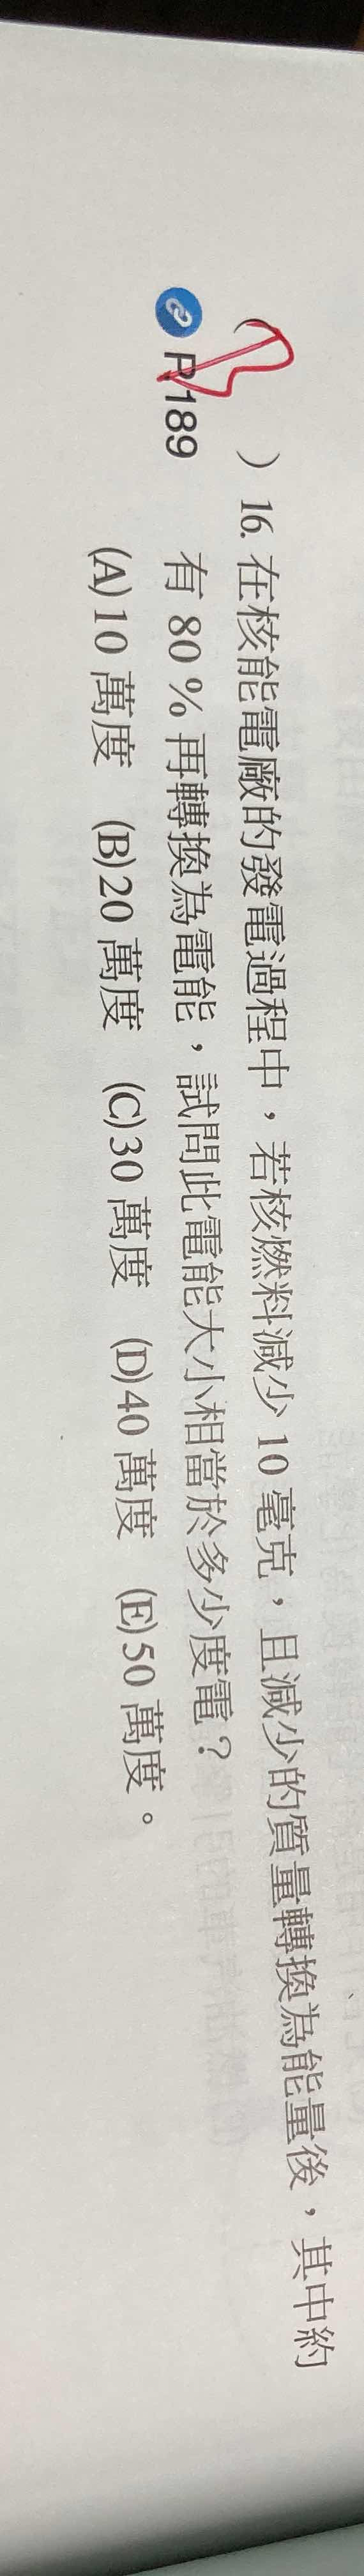 ( ) 16. 在核能電廠的發電過程中，若核燃料減少 10 毫克，且減少的質量轉換為能量後，其中約
P.189 有 80 % 再轉換為電能，試問此電能大小相當於多少度電？
(A)10 萬度 (B)20 萬度 (C)30 萬度 (D)40 萬度 (E)50 萬度。